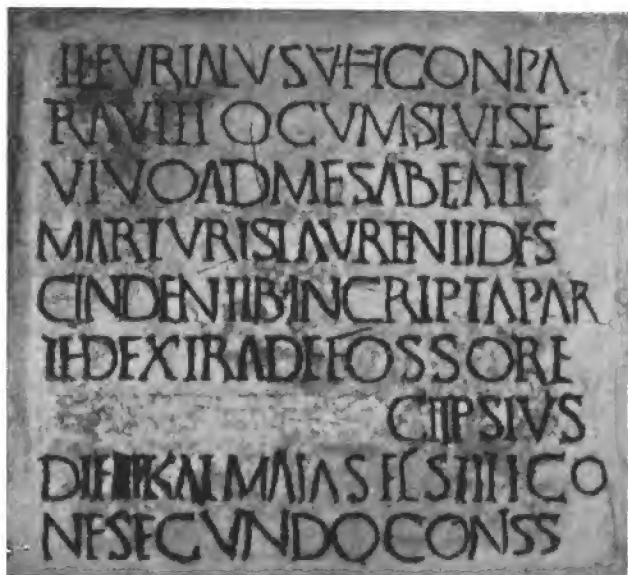 FLEVRIALVSVHCONPA
RAVITLOCVMSIVISE
VIVOADMESABEATI
MARTVRISLAVRENTIDES
CINDENTIBINCRIPTAPAR
TEDEXTRADEFOSSORE
CIIPSIVS
DIEIIIKALMAIASFLSTILICO
NESECVNDOCONSS